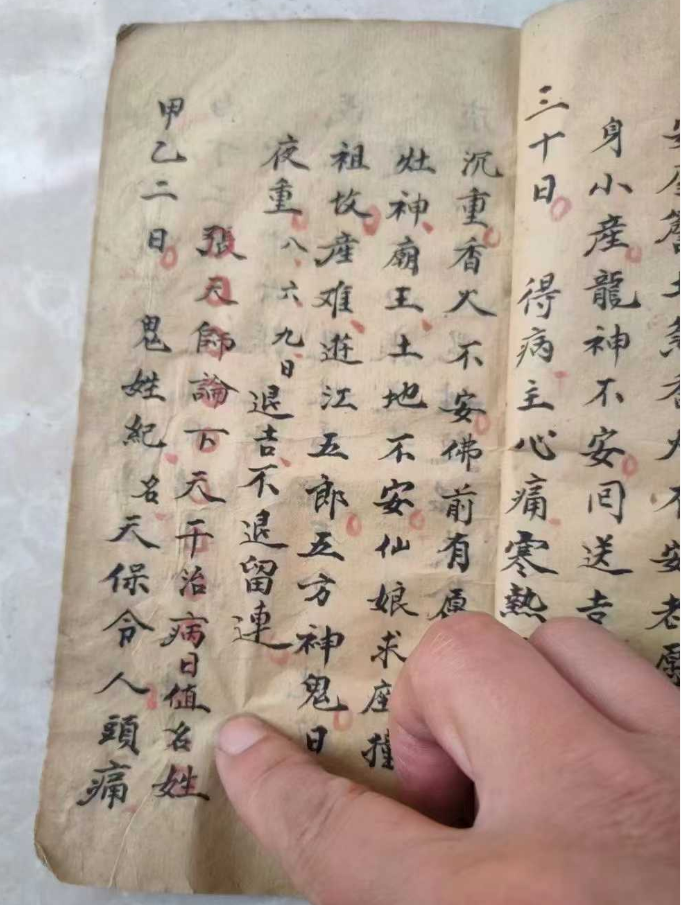 安
土
香火不安老愿
身小産龍神不安囘送吉
三十日 得病主心痛寒熱
沉重香火不安佛前有愿
灶神廟王土地不安仙娘求座撞
祖坟産难遊江五郎五方神鬼日
夜重八六九日退吉不退留連
張天師論下天干治病日值名姓
甲乙二日 鬼姓紀名天保令人頭痛